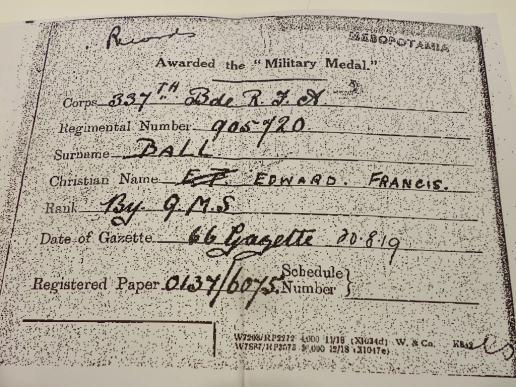 Records
MESOPOTAMIA
Awarded the "Military Medal."
Corps 337TH Bde R.F.A
Regimental Number 905720
Surname BALL
Christian Name E.F. EDWARD. FRANCIS.
Rank By Q.M.S
Date of Gazette 66 Gazette 20.8.19
Registered Paper 0137/6075 Schedule
Number
W7208/RP2272 4,000 11/18 (X1034d) W. & Co.